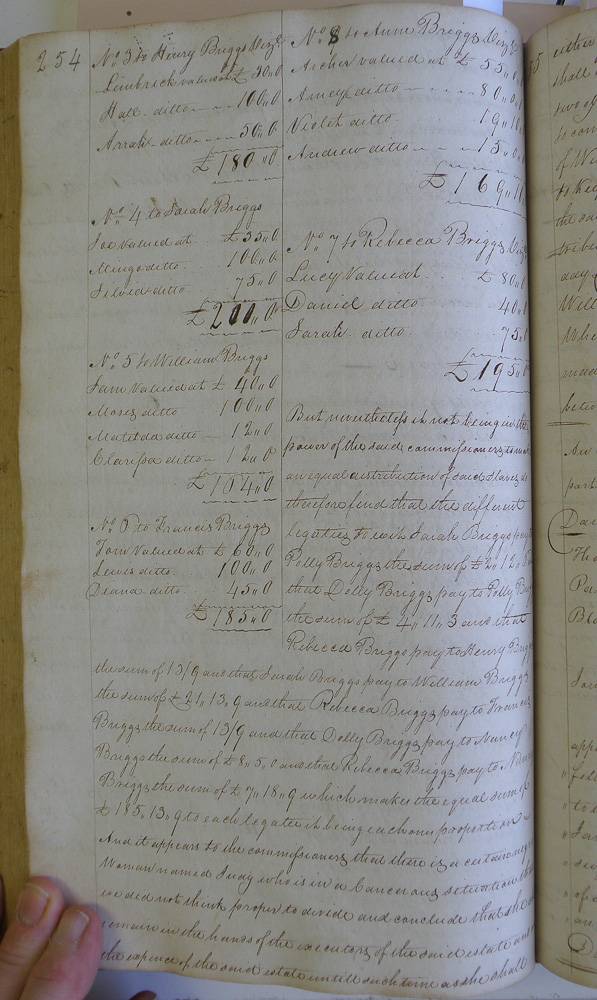 254
No. 3 to Henry Briggs Viz.
Limbrick valued at £ 30,,0
Hall ditto 100,,0
Arrah ditto 50,,0
£ 180,,0
No. 4 to Sarah Briggs
Joe valued at £ 35,,0
Mingo ditto 100,,0
ditto 75,,0
£ 210,,0
No. 5 to William Briggs
Sam Valued at £ 40,,0
Moses ditto 100,,0
Matilda ditto 12,,0
Clarissa ditto 12,,0
£ 164,,0
No. 6 to Francis Briggs
Tom Valued at £ 60,,0
Lewis ditto 100,,0
Deana ditto 45,,0
£ 185,,0
No. 8 to Anne Briggs Viz.
Archer valued at £ 55,,0,,0
ditto 80,,0,,0
Violet ditto 19,,10
Andrew ditto 15,,0
£ 169,,10
No. 7 to Rebecca Briggs Viz.
Lucy Valued at £ 80,,0
Daniel ditto 40,,0
Sarah ditto 75,,0
£ 195,,0
But nevertheless it not being in the
power of the said commissioners to make
an equal distribution of said Slaves
therefore find that the different
legatees to wit Sarah Briggs pay
Polly Briggs the sum of £ 2,,12,,
that Dolly Briggs pay to Polly
the sum of £ 4,,11,,3 and that
Rebecca Briggs pay to Henry Briggs
the sum of 13/9 and that Sarah Briggs pay to William Briggs
the sum of £ 21,,13,,9 and that Rebecca Briggs pay to Francis
Briggs the sum of 13/9 and that Dolly Briggs pay to Nancy
Briggs the sum of £ 8,,5,,0 and that Rebecca Briggs pay to
Briggs the sum of £ 7,,18,,9 which makes the equal sum of
£ 185,,13,,9 to each legatee it being each ones proportion
And it appears to the commissioners that there is a certain
Woman named Judy who is in a Cancerous situation
we did not think proper to divide and conclude that she
remain in the hands of the executors of the said estate and
the expence of the said estate untill such time as she shall